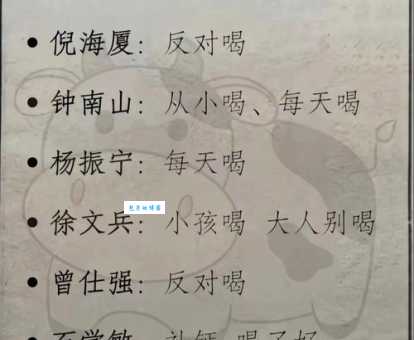 • 倪海厦: 反对喝
• 钟南山: 从小喝、每天喝
• 杨振宁: 每天喝
• 徐文兵: 小孩喝 大人别喝
• 曾仕强: 反对喝